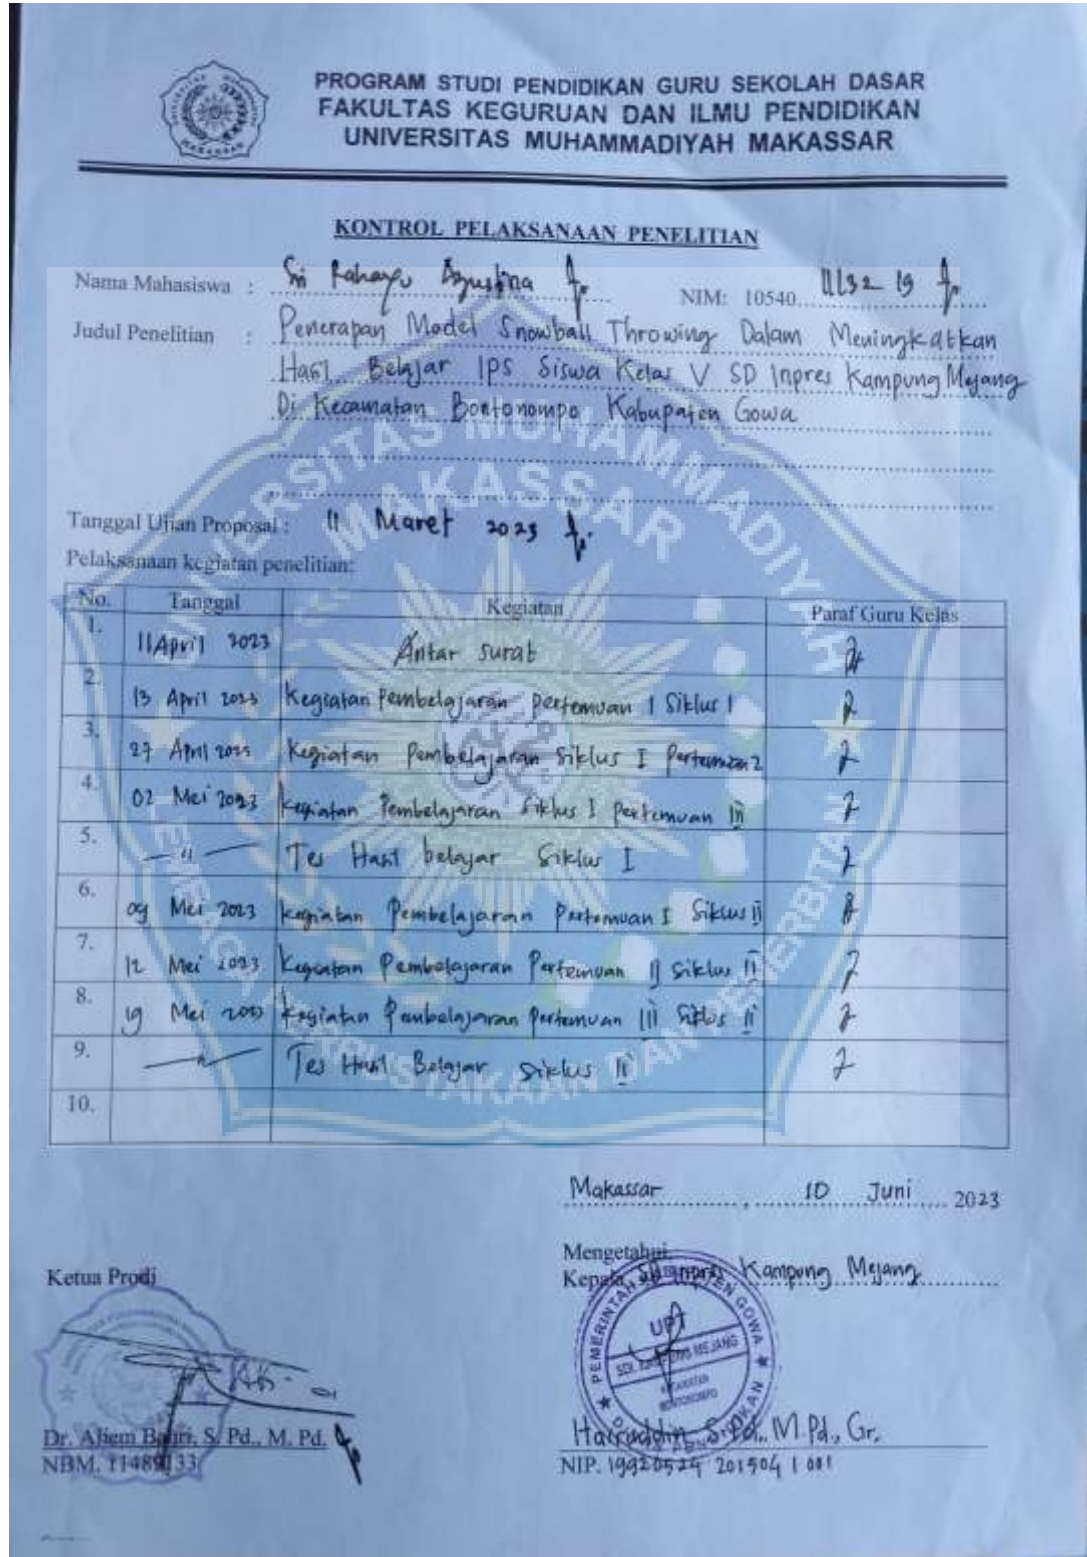 PROGRAM STUDI PENDIDIKAN GURU SEKOLAH DASAR
FAKULTAS KEGURUAN DAN ILMU PENDIDIKAN
UNIVERSITAS MUHAMMADIYAH MAKASSAR
KONTROL PELAKSANAAN PENELITIAN
Nama Mahasiswa : Sri Rahayu Agustina NIM: 10540 11132 19
Judul Penelitian : Penerapan Model Snowball Throwing Dalam Meningkatkan
Hasil Belajar IPS Siswa Kelas V SD Inpres Kampung Mejang
Di Kecamatan Bontonompo Kabupaten Gowa
Tanggal Ujian Proposal : 11 Maret 2023
Pelaksanaan kegiatan penelitian:
No. Tanggal Kegiatan Paraf Guru Kelas
1. 11 April 2023 Antar surat
2. 13 April 2023 Kegiatan Pembelajaran pertemuan 1 Siklus 1
3. 27 April 2023 Kegiatan Pembelajaran Siklus I Pertemuan 2
4. 02 Mei 2023 Kegiatan Pembelajaran Siklus I pertemuan III
5. — " — Tes Hasil belajar Siklus I
6. 09 Mei 2023 Kegiatan Pembelajaran Pertemuan I Siklus II
7. 12 Mei 2023 Kegiatan Pembelajaran Pertemuan II Siklus II
8. 19 Mei 2023 Kegiatan Pembelajaran Pertemuan III Siklus II
9. — " — Tes Hasil Belajar Siklus II
10.
Makassar, 10 Juni 2023
Mengetahui,
Ketua Prodi
Kepala SD Inpres Kampung Mejang
PEMERINTAH KABUPATEN GOWA
UPT
SDI KAMPUNG MEJANG
KECAMATAN
BONTONOMPO
Dr. Aliem Bahri, S. Pd., M. Pd.
NBM. 11489133
Hairuddin, S.Pd., M.Pd., Gr.
NIP. 19920529 201504 1 001
UNIVERSITAS MUHAMMADIYAH
MAKASSAR
LEMBAGA PERPUSTAKAAN DAN PENERBITAN